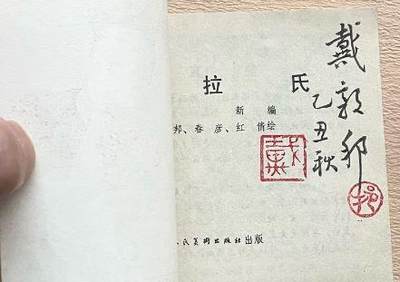 拉 氏
新 编
邦、春 彦、红 倩绘
人民美術出版社出版
戴敦邦
乙丑秋
戴